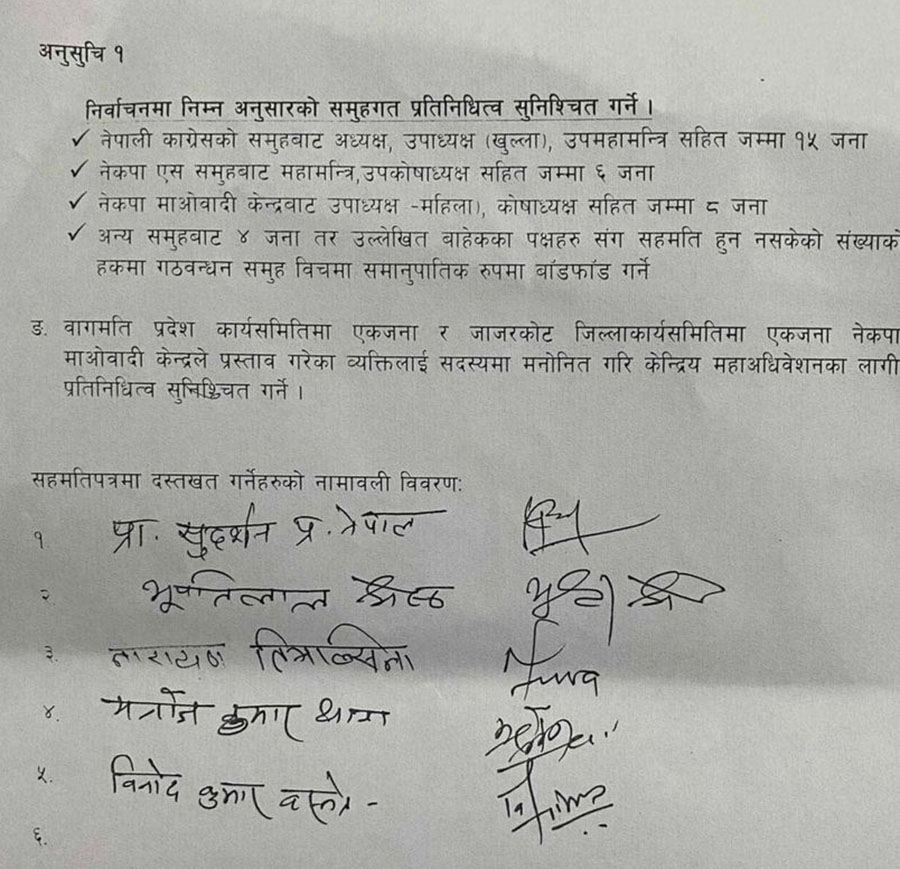 अनुसुचि १
निर्वाचनमा निम्न अनुसारको समुहगत प्रतिनिधित्व सुनिश्चित गर्ने ।
✓ नेपाली काग्रेसको समुहबाट अध्यक्ष, उपाध्यक्ष (खुल्ला), उपमहामन्त्रि सहित जम्मा १५ जना
✓ नेकपा एस समुहबाट महामन्त्रि,उपकोषाध्यक्ष सहित जम्मा ६ जना
✓ नेकपा माओवादी केन्द्रवाट उपाध्यक्ष -महिला), कोषाध्यक्ष सहित जम्मा ८ जना
✓ अन्य समुहबाट ४ जना तर उल्लेखित बाहेकका पक्षहरु संग सहमति हुन नसकेको संख्याको
हकमा गठवन्धन समुह विचमा समानुपातिक रुपमा बाँडफाँड गर्ने
ङ. वागमति प्रदेश कार्यसमितिमा एकजना र जाजरकोट जिल्लाकार्यसमितिमा एकजना नेकपा
माओवादी केन्द्रले प्रस्ताव गरेका व्यक्तिलाई सदस्यमा मनोनित गरि केन्द्रिय महाअधिवेशनका लागी
प्रतिनिधित्व सुनिश्चित गर्ने ।
सहमतिपत्रमा दस्तखत गर्नेहरुको नामावली विवरण:
१ प्रा. सुदर्शन प्र. नेपाल
२ भूपतिलाल श्रेष्ठ
३. नारायण तिमल्सिना
४. मनोज कुमार थापा
५. विनोद कुमार
६.